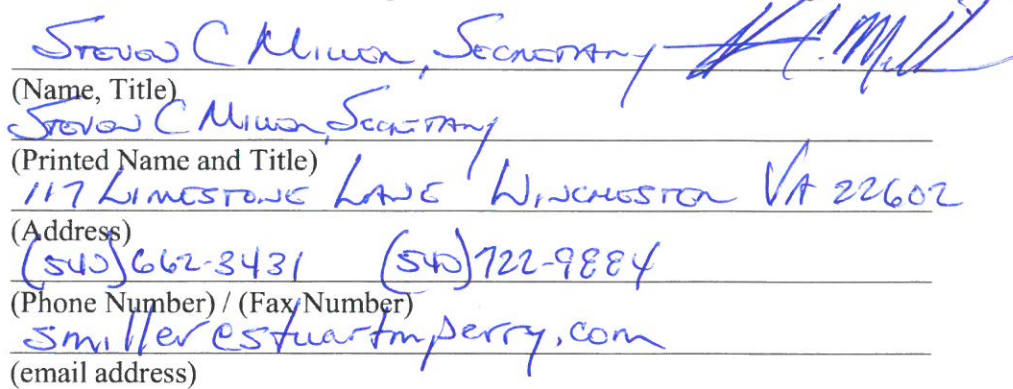 Steven C Miller, Secretary
(Name, Title)
Steven C Miller, Secretary
(Printed Name and Title)
117 Limestone Lane Winchester VA 22602
(Address)
(540) 662-3431 (540) 722-9884
(Phone Number) / (Fax Number)
smiller@stuartmperry.com
(email address)